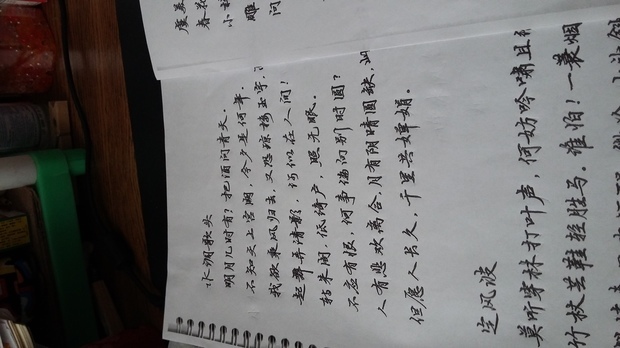 虞美
春花
小楼
雕
问
水调歌头
明月几时有？把酒问青天。
不知天上宫阙，今夕是何年。
我欲乘风归去，又恐琼楼玉宇，
起舞弄清影，何似在人间！
转朱阁，低绮户，照无眠。
不应有恨，何事偏向别时圆？
人有悲欢离合，月有阴晴圆缺，此
但愿人长久，千里共婵娟。
定风波
莫听穿林打叶声，何妨吟啸且行
竹杖芒鞋轻胜马。谁怕！一蓑烟